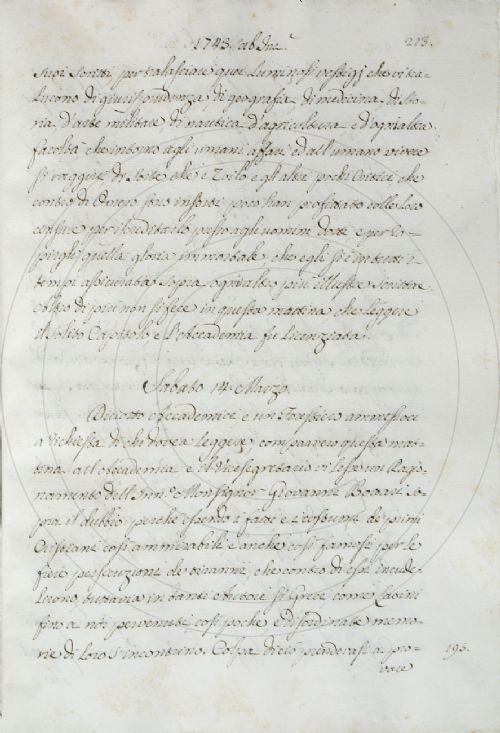 1743. ab Inc.ᵉ 213.
suoi scritti, per tralasciare quei luminosi vestigj che vi tra-
lucono di giurisprudenza, di geografia, di medicina, di sto-
ria, d'arte militare, di nautica, d'agricoltura e d'ogni altra
facoltà che intorno agli umani affari ed all'umano vivere
si raggiri di sorte che e Zoilo e gli altri pochi critici che
contro di Omero sono insorti poco han profittato colle loro
censure per iscreditarlo presso agli uomini dotti e per
quella gloria immortale che egli si è in tutti i
tempi assicurata sopra ogni altro più illustre scrittore.
Altro di più non si fece in questa mattina che leggere
il solito Capitolo, e l'Accademia fu licenziata.
Sabato 14 Marzo.
Diciotto Accademici e un Forestiero ammessoci
a richiesta di chi dovea leggere comparvero questa mat-
tina all'Accademia e il Vicesegretario ci lesse un Ragio-
namento dell'Ill.ᵐᵒ Monsignor Giovanni Bottari so-
pra il dubbio perchè essendo i fatti e i costumi de' primi
Cristiani così ammirabili e anche così famosi per le
fiere persecuzioni de' tiranni, che contro di essi incrude-
lirono, tuttavia in tanti autori sì Greci come Latini
fino a noi pervenuti così poche e disordinate memo-
rie di loro s'incontrino. Colpa di ciò prendevasi a pro- 195.
vare